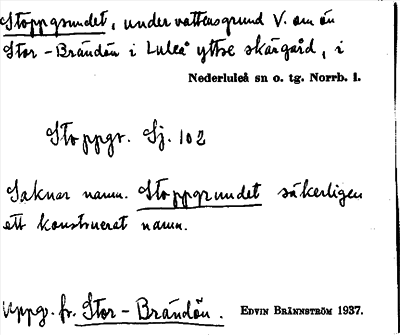 Stoppgrundet, undervattensgrund V. om ön
Stor-Brändön i Luleå yttre skärgård, i
Nederluleå sn o. tg. Norrb. l.
Stoppgr. Sj. 102
Saknar namn. Stoppgrundet säkerligen
ett konstruerat namn.
Uppg. fr. Stor-Brändön.
EDVIN BRÄNNSTRÖM 1937.